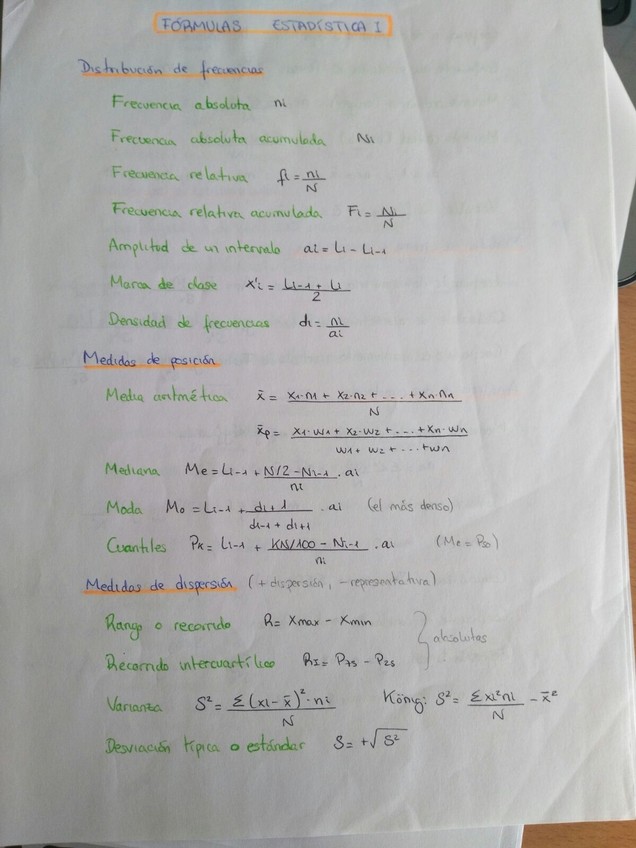 FÓRMULAS ESTADÍSTICA I
Distribución de frecuencias
Frecuencia absoluta ni
Frecuencia absoluta acumulada Ni
Frecuencia relativa fi = ni/N
Frecuencia relativa acumulada Fi = Ni/N
Amplitud de un intervalo ai = Li - Li-1
Marca de clase x'i = (Li-1 + Li)/2
Densidad de frecuencias di = ni/ai
Medidas de posición
Media aritmética x̄ = (x1·n1 + x2·n2 + ... + xn·nn)/N
x̄p = (x1·w1 + x2·w2 + ... + xn·wn)/(w1 + w2 + ... + wn)
Mediana Me = Li-1 + (N/2 - Ni-1)/ni · ai
Moda Mo = Li-1 + (di+1)/(di-1 + di+1) · ai (el más denso)
Cuantiles Pk = Li-1 + (KN/100 - Ni-1)/ni · ai (Me = P50)
Medidas de dispersión (+ dispersión, - representativa)
Rango o recorrido R = Xmax - Xmin
absolutas
Recorrido intercuartílico RI = P75 - P25
Varianza S² = Σ(xi - x̄)²·ni/N König: S² = Σxi²ni/N - x̄²
Desviación típica o estándar S = +√S²